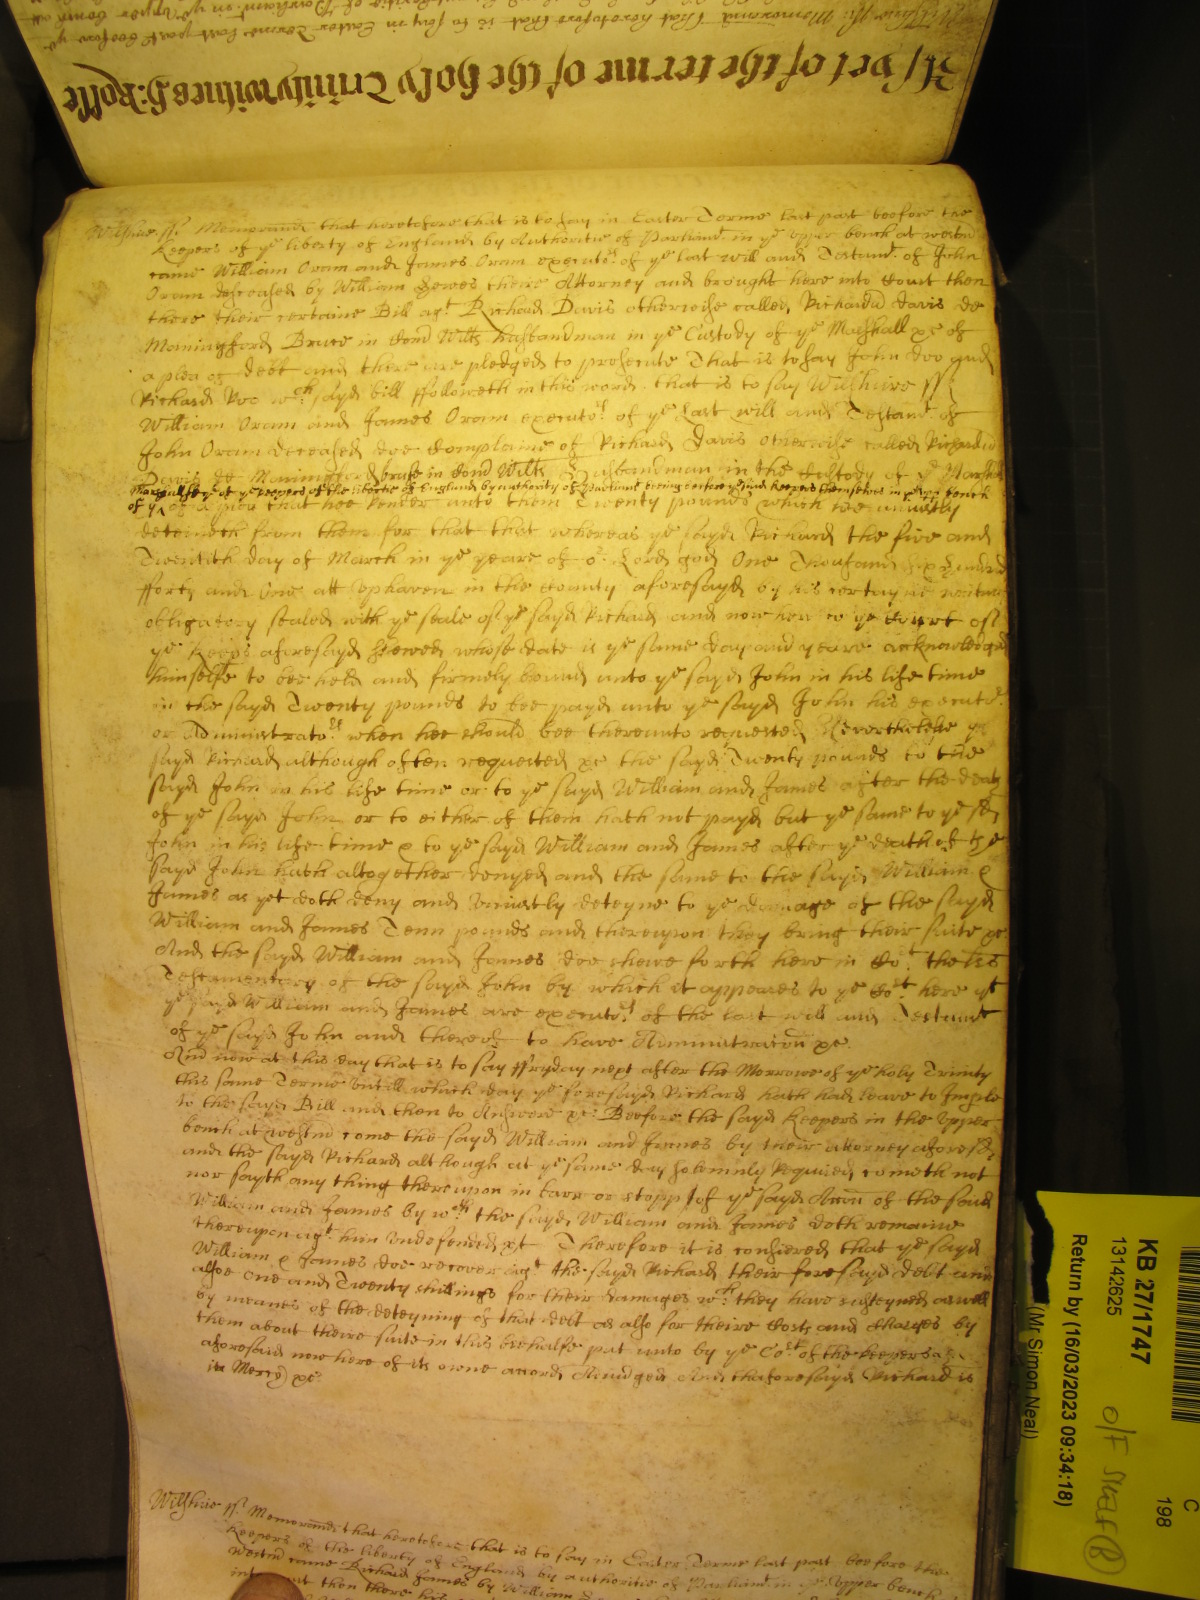 As yet of the terme of the holy Trinity witnes H: Rolle
Wilshire ss. Memorand that heretofore that is to say in Easter Terme last past beefore the
Keepers of ye liberty of England by Authoritie of Parliamt. in ye upper bench at westm
came William Oram and James Oram executors of ye last will and Testamt. of John
Oram deceased by William Hewes theire Attorney and brought here into Court then
there their certaine Bill agt. Richard Davis otherwise called Richard Davis de
Maningford Bruce in Com Wilts husbandman in ye Custody of ye Marshall xc of
a plea of debt and there are pledges to prosecute That is to say John doo and
Richard Roo wch. sayd bill ffolloweth in this words that is to say Wilshire ss
William Oram and James Oram executors. of ye Last will and Testamt. of
John Oram deceased doe Complaine of Richard Davis otherwise called Richard
Davis de Maningford bruse in Com Wilts Husbandman in the Custody of ye Marshall
Marshallsey of ye keepers of the libertie of England by authority of Parliamt beeing before ye said keepers themselves in ye upper bench
of a plea that hee render unto them Twenty pounds which hee uniustly
deteineth from them for that that whereas ye sayd Richard the five and
Twentith day of March in ye yeare of or. Lord god One Thousand six hundred
fforty and One att Uphaven in the County aforesayd by his certayne writing
obligatory sealed with ye seale of ye sayd Richard and now here to ye Court of
ye Keeps aforesayd shewed whose date is ye same day and yeare acknowledged
himselfe to bee held and firmely bound unto ye sayd John in his life time
in the sayd Twenty pounds to bee payd unto ye sayd John his executors.
or Administrators. when hee should bee thereunto requested Neverthelesse ye
sayd Richard although often requested xc the sayd Twenty pounds to the
sayd John in his life time or to ye sayd William and James after the death
of ye sayd John or to either of them hath not payd but ye same to ye sd
John in his life time & to ye sayd William and James after ye death of the
sayd John hath altogether denyed and the same to the sayd William &
James as yet doth deny and Uniustly deteyne to ye damage of the sayd
William and James Tenn pounds and thereupon they bring their suite xc
And the sayd William and James doe shewe forth here in Cot. the lrs
Testamentary of the sayd John by which it appeares to ye Cort here yt
ye sayd William and James are executors of the last will and Testamt
of ye sayd John and thereof to have Administracon xc.
And now at this day that is to say ffryday next after the Morrowe of ye holy Trinity
this same Terme Untill which day ye foresayd Richard hath had leave to Imparle
to the sayd Bill and then to Answere xc Beefore the sayd Keepers in the Upper
bench at westm come the sayd William and James by their attorney aforesd
and the sayd Richard although at ye same day solemnly Required cometh not
nor sayth any thing thereupon in barr or stopp of ye sayd Accon of the said
William and James by wch the sayd William and James doth remaine
thereupon agt. him Undefended xc Therefore it is consiered that ye sayd
William & James doe recover agt the sayd Richard their foresayd debt and
alsoe one and Twenty shillings for their damages wch they have susteyned as well
by meanes of the deteyning of that debt as also for theire Costs and Charges by
them about theire suite in this beehalfe put unto by ye Cort of the keepers
aforesaid now here of its owne accord Aiudged And thaforesayd Richard is
in Mercy xc
Wilshire ss. Memorand that heretofore that is to say in Easter Terme last past beefore the
Keepers of the liberty of England by authoritie of Parliamt. in ye upper bench
Westm came Richard James by William
then there his
KB 27/1747
13142625
Return by (16/03/2023 09:34:18)
(Mr Simon Neal)
C
198
O/F Shelf B